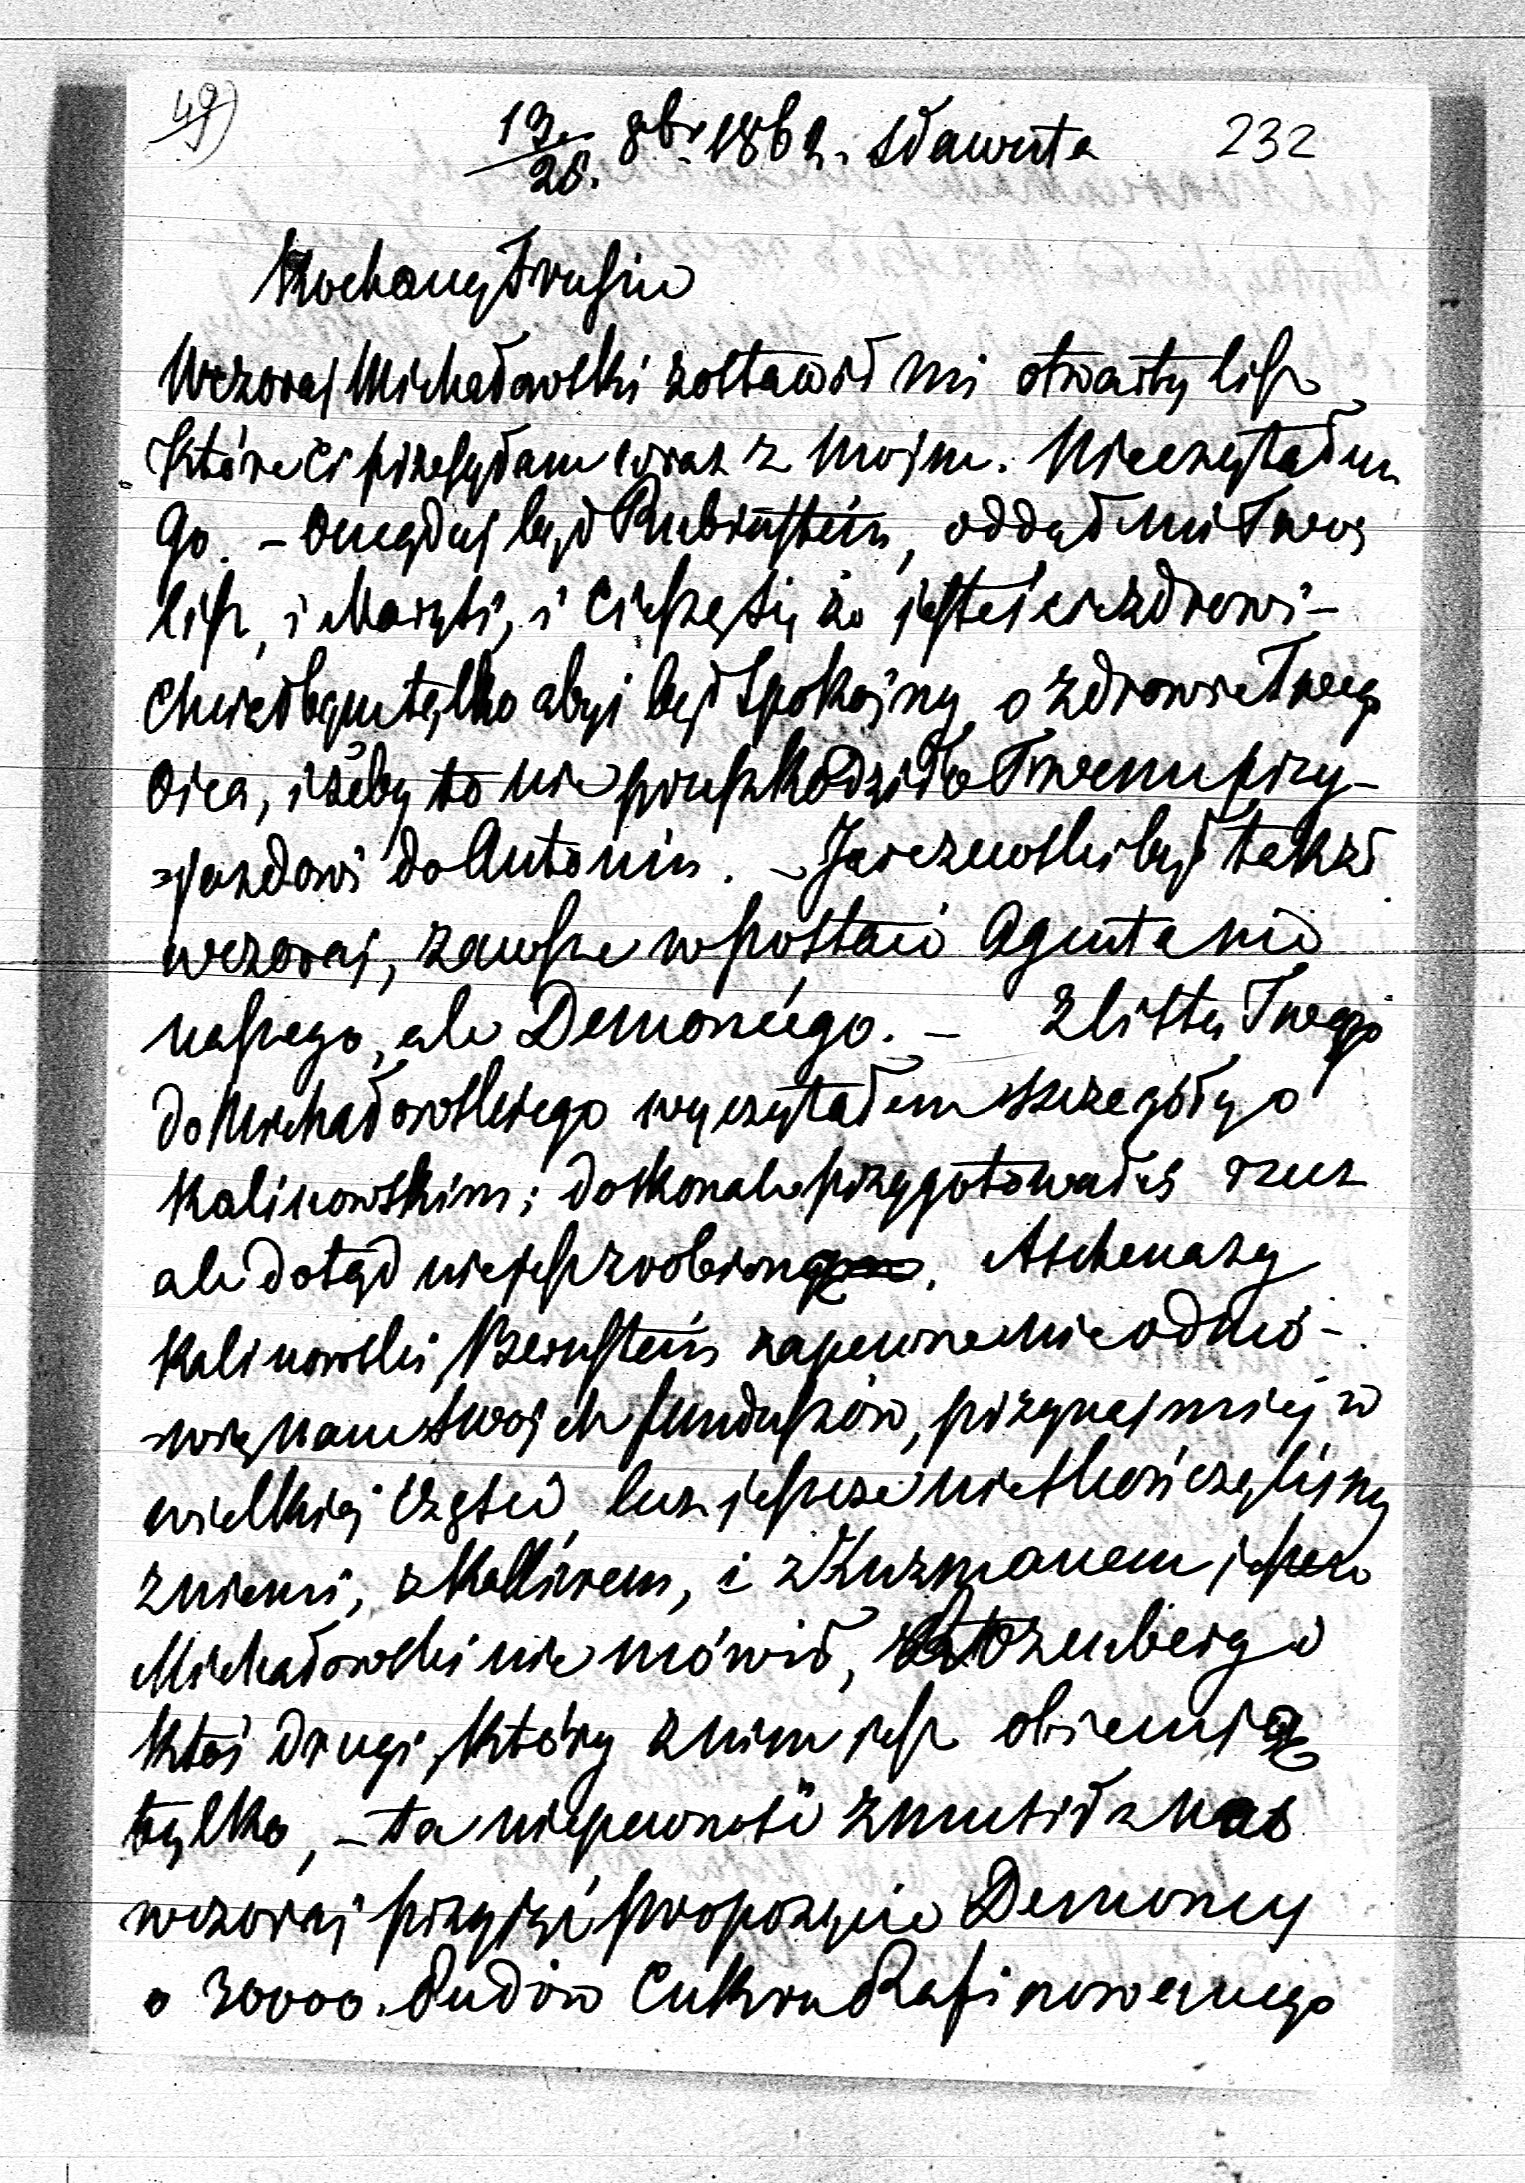 49)
13/25. 8br 1862. Sławuta 232
Kochany Trusiu
Wczoraj Michałowski zostawił mi otwarty list
które ci przesyłam wraz z mojm. Nieczytałem
go. – Onegdaj był Rubinstein, oddał mi Twoj
list, i Maryti, i Cieszę się że jesteście zdrowi –
Chciałbym tylko abyś był spokojny o zdrowie Twego
Oica, i żeby to nie przeszkodziło Twemu przy-
-jazdowi do Antonin. – Jarczewski był także
wczoraj, zawsze w postaci Agenta nie
naszego, ale Demoniego. – Z listu Twego
do Michałowskiego wyczytałem szczegóły o
Kalinowskim; doskonale przygotowałeś rzecz
ale dotąd nie jest zrobiona. Aschenazy
Kalinowski, Bernstein zapewne nie odmó-
-wią nam swojch funduszów, przynajmniej w
wielkiej części, lecz jeszcze nie skończyliśmy
z niemi, z Kellerem, i z Kuzmanem jeszcze
Michałowski nie mówił, Rozenberg i
ktoś drugi, który z nim jest obiemią
tylko, – ta niepewność zmusiła nas
wczoraj przyjąć propozycie Demoncy
o 30000. Pudów Cukru Rafinowanego